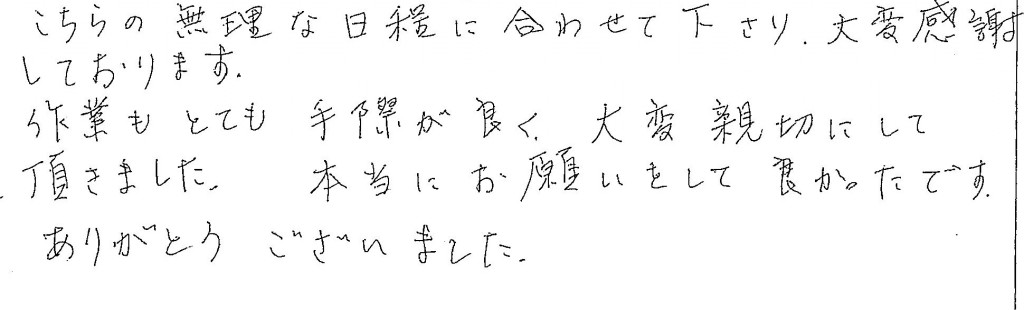 こちらの無理な日程に合わせて下さり、大変感謝
しております。
作業もとても手際が良く、大変親切にして
頂きました。 本当にお願いをして良かったです。
ありがとうございました。